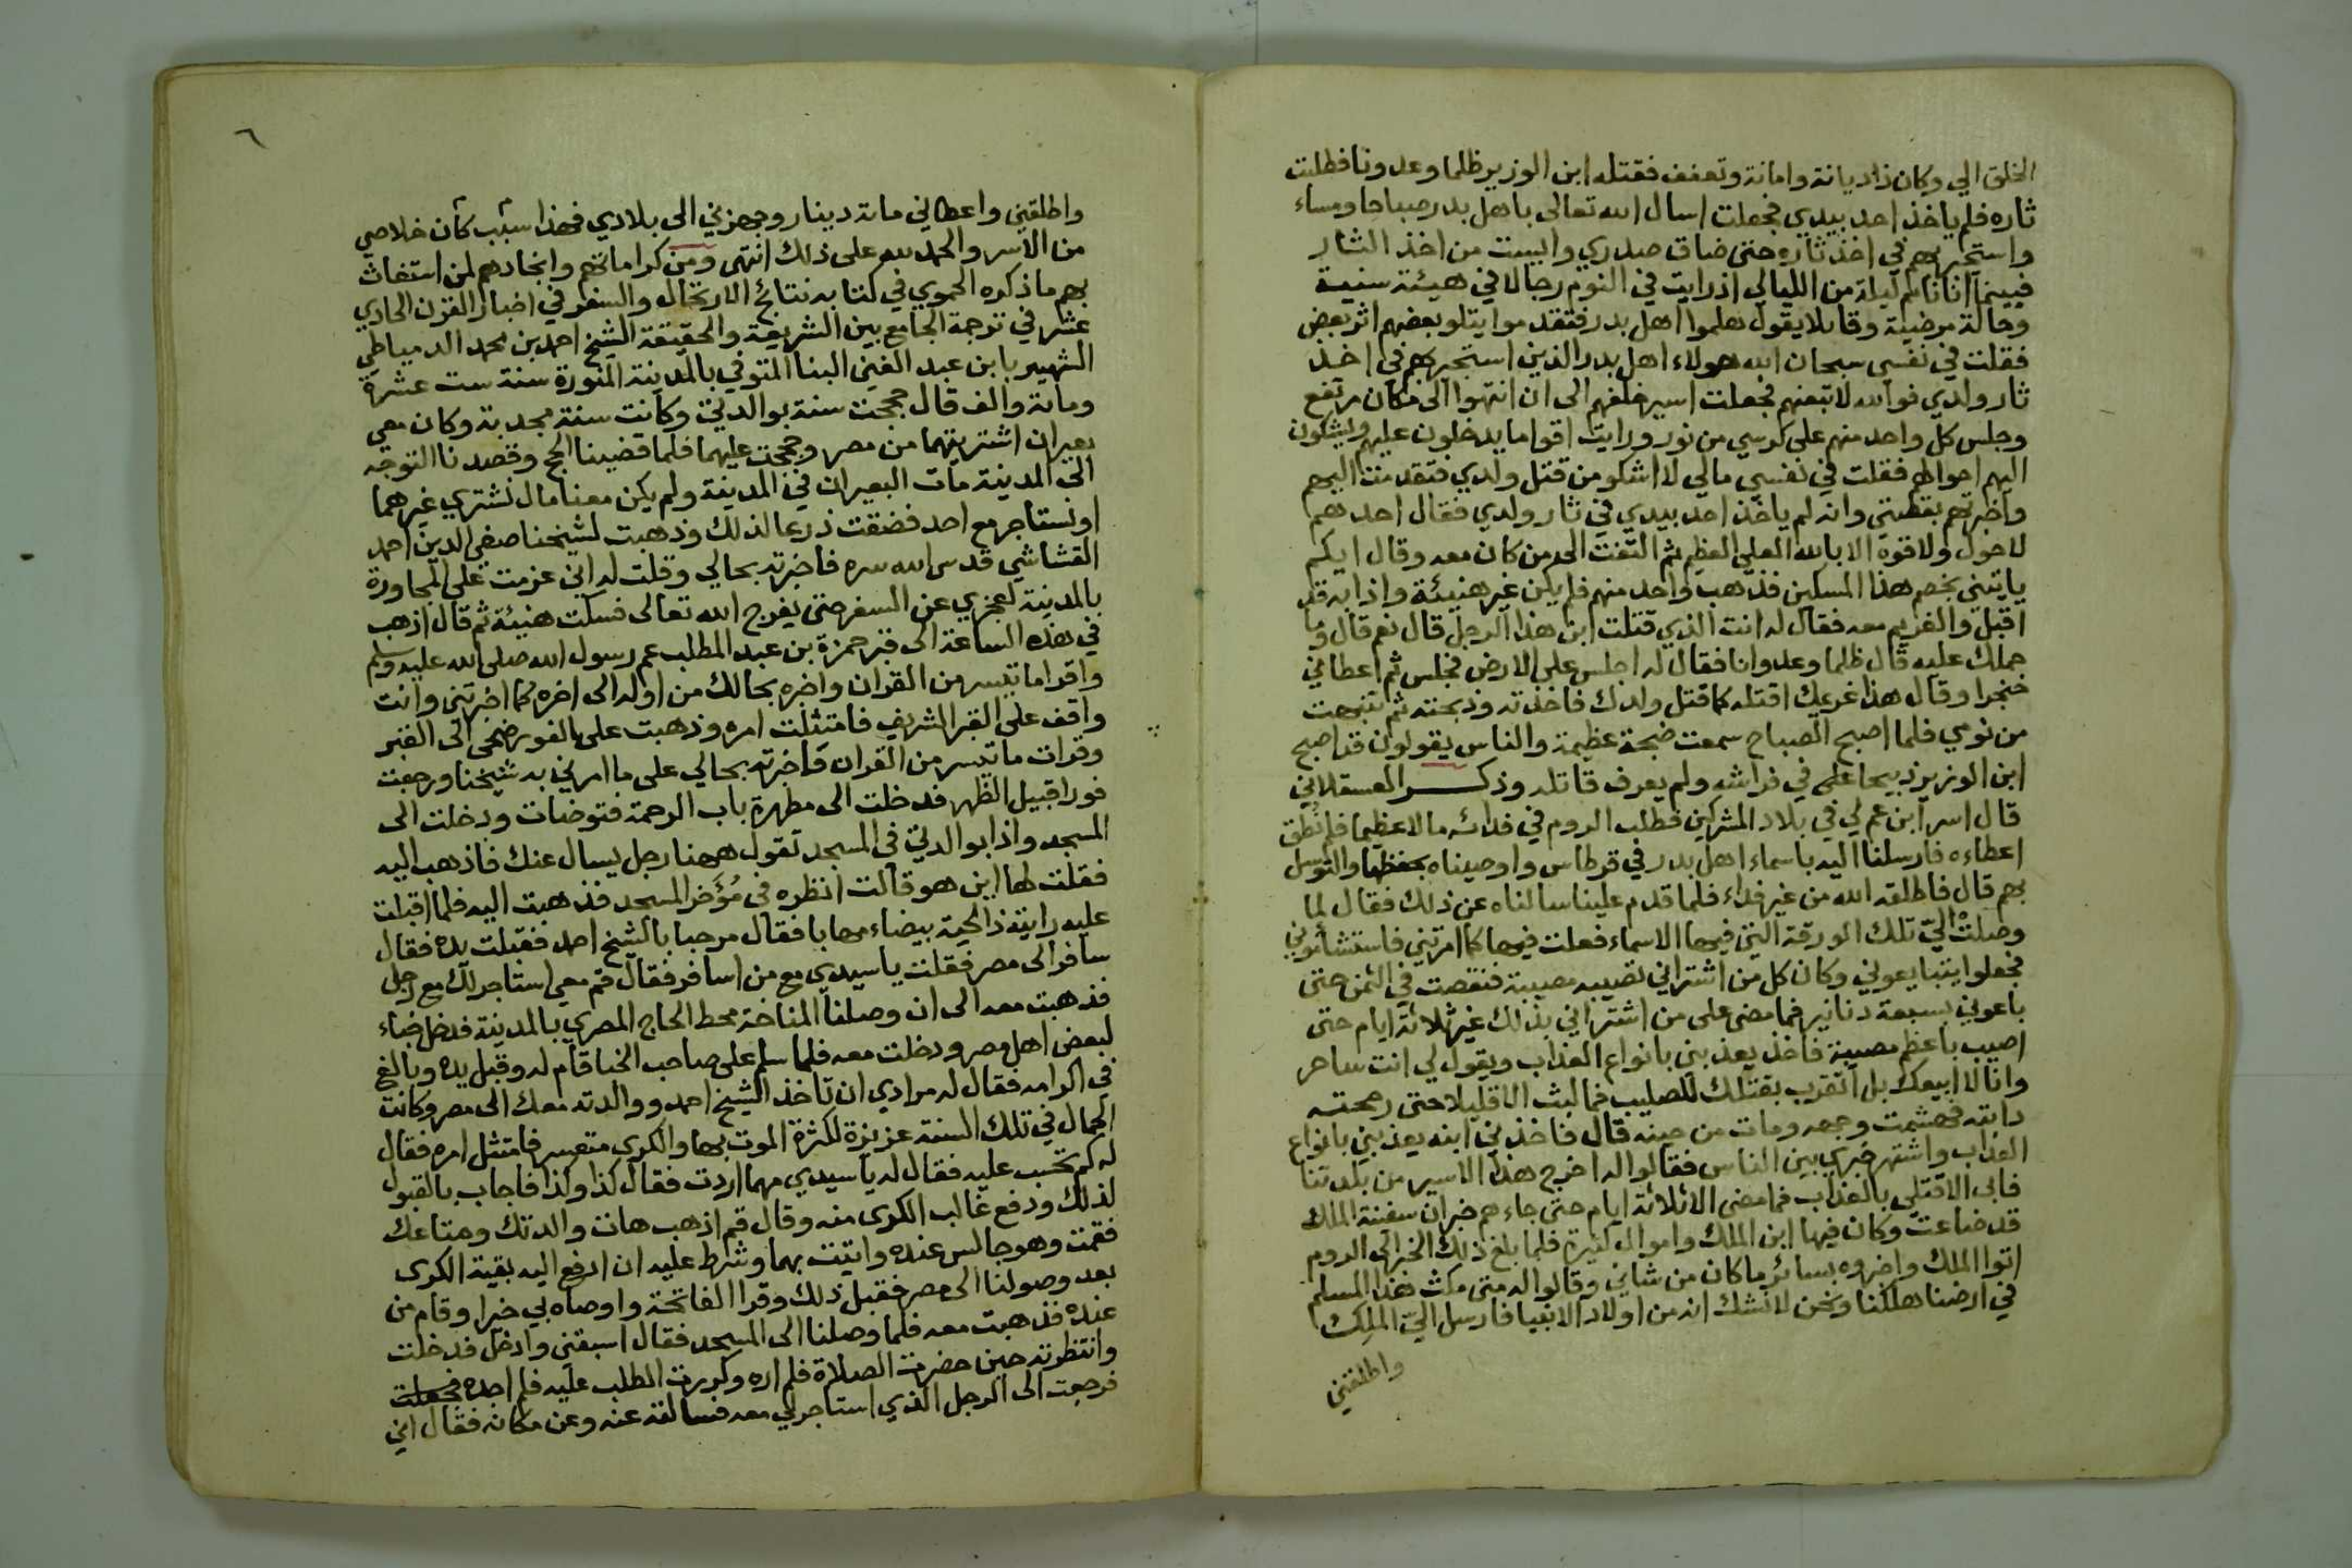 الخلق الي وكان ذا ديانة وامانة وتعفف فقتله ابن الوزير ظلما وعدونا فطلبت
ثاره فلم ياخذ احد بيدي فجعلت اسال الله تعالى باهل بدر صباحا ومساء
واستجير بهم في اخذ ثاره حتى ضاق صدري وايست من اخذ الثار
فبينما انا نائم ليلة من الليالي اذ رايت في النوم رجالا في هيئة سنية
وحالة مرضية وقايلا يقول هلموا اهل بدر فتقدموا يتلو بعضهم اثر بعض
فقلت في نفسي سبحان الله هولاء اهل بدر الذين استجير بهم في اخذ
ثار ولدي فوالله لاتبعنهم فجعلت اسير خلفهم الى ان انتهوا الى مكان مرتفع
وجلس كل واحد منهم على كرسي من نور ورايت اقواما يدخلون عليهم ويشكون
اليهم احوالهم فقلت في نفسي مالي لا اشكو من قتل ولدي فتقدمت اليهم
واخبرتهم بقصتي وانه لم ياخذ احد بيدي في ثار ولدي فقال احدهم
لا حول ولا قوة الا بالله العلي العظيم ثم التفت الى من كان معه وقال ايكم
ياتيني بخصم هذا المسكين فذهب واحد منهم فلم يكن غير هنيئة واذا به قد
اقبل والغريم معه فقال له انت الذي قتلت ابن هذا الرجل قال نعم قال وما
حملك عليه قال ظلما وعدوانا فقال له اجلس على الارض فجلس ثم اعطاني
خنجرا وقال هذا غريمك اقتله كما قتل ولدك فاخذته وذبحته ثم تنبهت
من نومي فلما اصبح الصباح سمعت ضجة عظيمة والناس يقولون قد اصبح
ابن الوزير ذبيحا على في فراشه ولم يعرف قاتله وذكر العسقلاني
قال اسر ابن عم لي في بلاد المشركين فطلب الروم في فدائه مالا عظيما فلم نطق
اعطاءه فارسلنا اليه باسماء اهل بدر في قرطاس واوصيناه بحفظها والتوسل
بهم قال فاطلقه الله من غير فداء فلما قدم علينا سالناه عن ذلك فقال لما
وصلت الي تلك الورقة التي فيها الاسماء فعلت فيها كما امرتني فاستشأموني
فجعلوا يتبايعوني وكان كل من اشتراني تصيبه مصيبة فنقصت في الثمن حتى
باعوني بسبعة دنانير فما مضى على من اشتراني بذلك غير ثلاثة ايام حتى
اصيب باعظم مصيبة فاخذ يعذبني بانواع العذاب ويقول لي انت ساحر
وانا لا ابيعك بل اتقرب بقتلك للصليب فما لبث الا قليلا حتى رمحته
دابته فهشمت وجهه ومات من حينه قال فاخذني ابنه يعذبني بانواع
العذاب واشتهر خبري بين الناس فقالوا له اخرج هذا الاسير من بلدتنا
فابى الا قتلي بالعذاب فما مضى الا ثلاثة ايام حتى جاءهم خبر ان سفينة الملك
قد ضاعت وكان فيها ابن الملك واموال كثيرة فلما بلغ ذلك الخبر الى الروم
اتوا الملك واخبروه بسائر ما كان من شاني وقالوا له متى مكث هذا المسلم
في ارضنا هلكنا ونحن لا نشك انه من اولاد الانبيا فارسل الي الملك
واطلقني
٦
واطلقني واعطاني مائة دينار وجهزني الى بلادي فهذا سبب كان خلاصي
من الاسر والحمد لله على ذلك انتهى ومن كراماتهم وانجادهم لمن استغاث
بهم ما ذكره الحموي في كتابه نتائج الارتحال والسفر في اخبار القرن الحادي
عشر في ترجمة الجامع بين الشريعة والحقيقة الشيخ احمد بن محمد الدمياطي
الشهير بابن عبد الغني البنا المتوفي بالمدينة المنورة سنة ست عشرة
ومائة والف قال حججت سنة بوالدتي وكانت سنة مجدبة وكان معي
بعيران اشتريتهما من مصر وحججت عليهما فلما قضينا الحج وقصدنا التوجه
الى المدينة مات البعيران في المدينة ولم يكن معنا مال نشتري غيرهما
او نستاجر مع احد فضقت ذرعا لذلك وذهبت لشيخنا صفي الدين احمد
القشاشي قدس الله سره فاخبرته بحالي وقلت له اني عزمت على المجاورة
بالمدينة لعجزي عن السفر حتى يفرج الله تعالى فسكت هنيئة ثم قال اذهب
في هذه الساعة الى قبر حمزة بن عبد المطلب عم رسول الله صلى الله عليه وسلم
واقرا ما تيسر من القران واخبره بحالك من اوله الى اخره كما اخبرتني وانت
واقف على القبر الشريف فامتثلت امره وذهبت على الفور ضحى الى القبر
وقرات ما تيسر من القران واخبرته بحالي على ما امرني به شيخنا ورجعت
فورا قبيل الظهر فدخلت الى مطهرة باب الرحمة فتوضات ودخلت الى
المسجد واذا بوالدتي في المسجد تقول ههنا رجل يسال عنك فاذهب اليه
فقلت لها اين هو قالت انظره في مؤخر المسجد فذهبت اليه فلما اقبلت
عليه رايته ذا لحية بيضاء مهابا فقال مرحبا بالشيخ احمد فقبلت يده فقال
سافر الى مصر فقلت يا سيدي مع من اسافر فقال قم معي استاجر لك مع رجل
فذهبت معه الى ان وصلنا المناخة محط الحاج المصري بالمدينة فدخل خباء
لبعض اهل مصر ودخلت معه فلما سلم على صاحب الخبا قام له وقبل يده وبالغ
في اكرامه فقال له مرادي ان تاخذ الشيخ احمد ووالدته معك الى مصر وكانت
الجمال في تلك السنة عزيزة لكثرة الموت بها والكرى متعسر فامتثل امره فقال
له كم تحسب عليه فقال له يا سيدي مهما اردت فقال كذا وكذا فاجاب بالقبول
لذلك ودفع غالب الكرى منه وقال قم اذهب هات والدتك ومتاعك
فقمت وهو جالس عنده واتيت بهما وشرط عليه ان ادفع اليه بقية الكرى
بعد وصولنا الى مصر فقبل ذلك وقرا الفاتحة واوصاه بي خيرا وقام من
عنده فذهبت معه فلما وصلنا الى المسجد فقال اسبقني وادخل فدخلت
وانتظرته حين حضرت الصلاة فلم اره وكررت الطلب عليه فلم اجده فجعلت
فرجعت الى الرجل الذي استاجر لي معه فسالته عنه وعن مكانه فقال اني